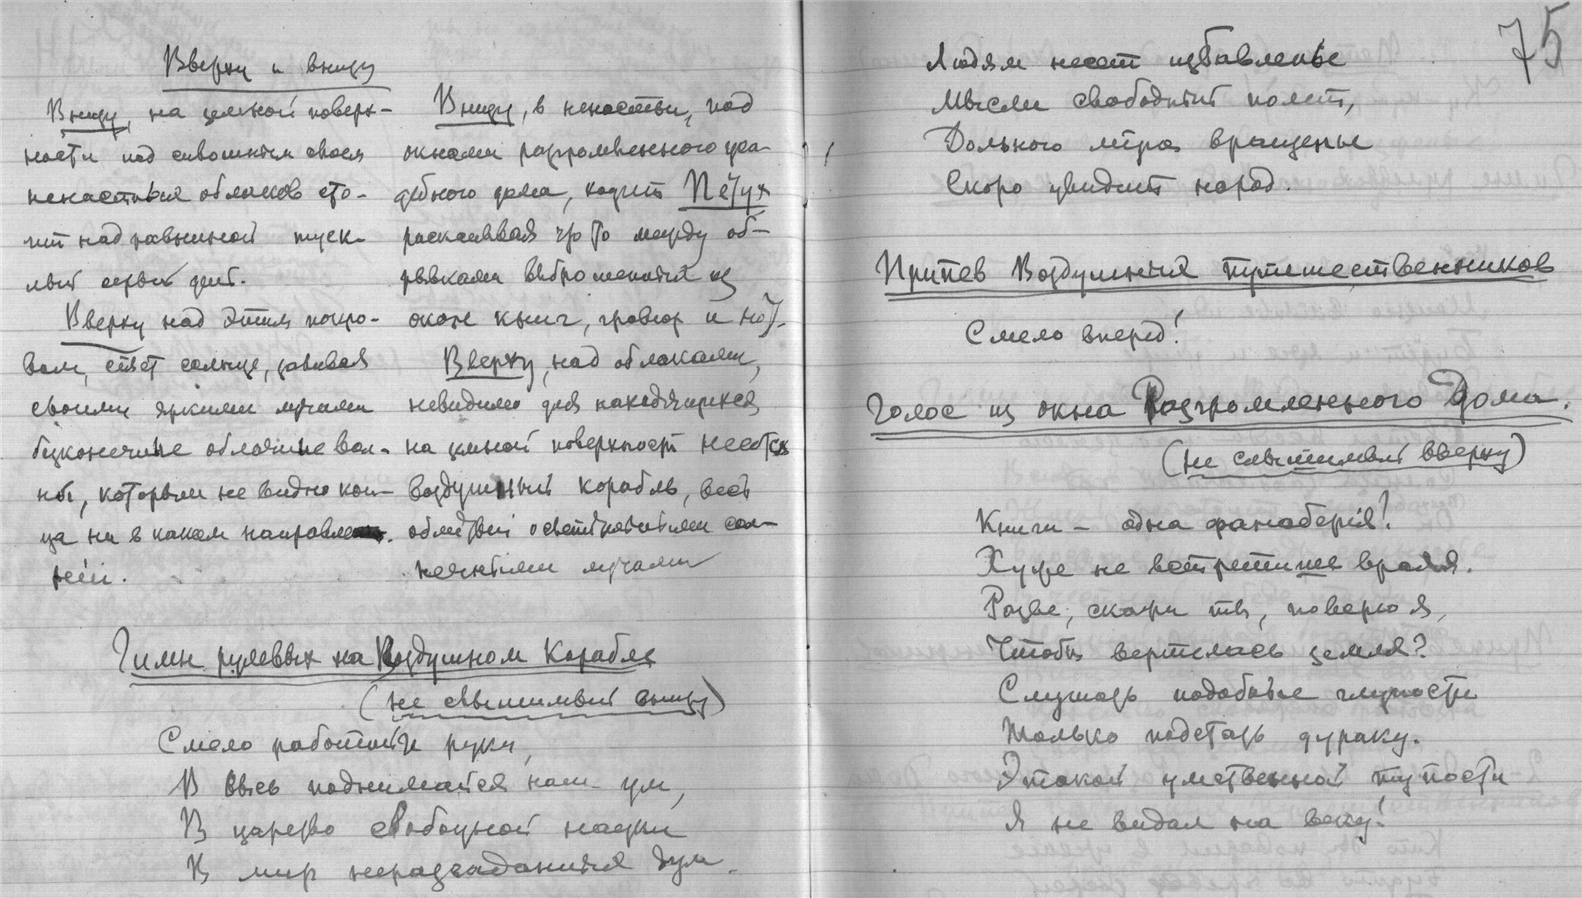 Вверху и внизу
Внизу, на земной поверх-
ности под сплошным слоем
ненастных облаков сто-
ит над равниной туск-
лый серый день.
Вверху над этим покро-
вом, сияет солнце, заливая
своими яркими лучами
бесконечные облачные вол-
ны, которым не видно кон-
ца ни в каком направле-
нии.
Внизу, в ненастьи, под
окнами разгромленного уса-
дебного дома, ходит Петух
раскапывая что то между об-
рывками выброшенных из
окон книг, гравюр и нот.
Вверху, над облаками,
невидимо для находящихся
на земной поверхности несется
Воздушный корабль, весь
облитый ослепительными сол-
нечными лучами
Гимн рулевых на Воздушном Корабле
(не слышимый внизу)
Смело работайте руки,
В высь поднимайся наш ум,
В царство свободной науки
В мир неразгаданных дум.
75
Людям несет избавленье
Мысли свободный полет,
Дольного мира вращенье
Скоро увидит народ.
Припев Воздушных путешественников
Смело вперед!
Голос из окна Разгромленного Дома.
(не слышимый вверху)
Книги – одна фанаберия!
Хуже не встретишь вранья.
Разве, скажи ты, поверю я,
Чтобы вертелась земля?
Слушать подобные глупости
Только подстать дураку.
Этакой умственной тупости
Я не видал на веку!